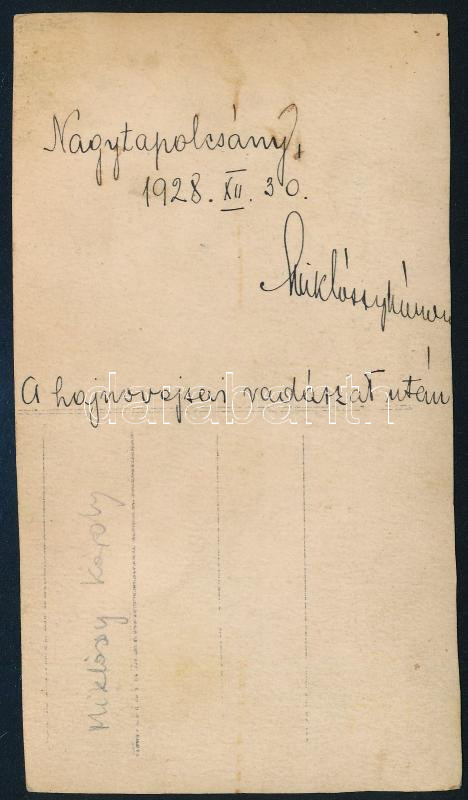 Nagytapolcsány,
1928. XII. 30.
A hajnovejsai vadászat után
darabanth
Miklóssy Károly